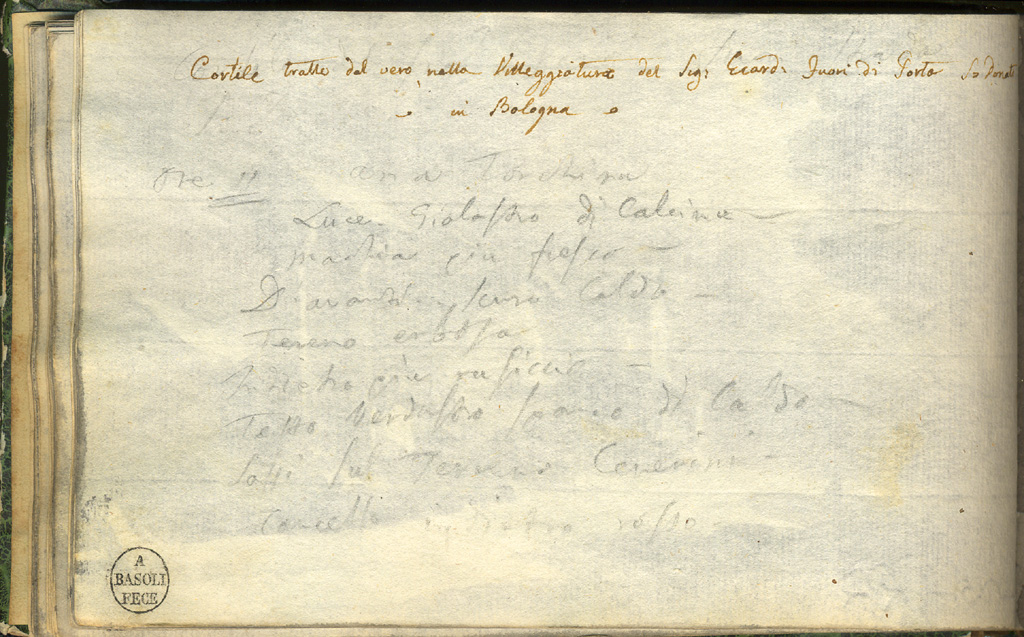 Cortile tratto dal vero nella Villeggiatura del Sig: Ecard: Fuori di Porta So Donato
in Bologna
ore 11 aria Torchina
Luce Gialastro di Calcina
machia più fresco
D avanti scuro Caldo
Tereno erboso
più rusiccio
Tetto Verdastro sparco di Caldo
Sassi sul Terreno Cenerini
Cancello indietro rosso
A
BASOLI
FECE